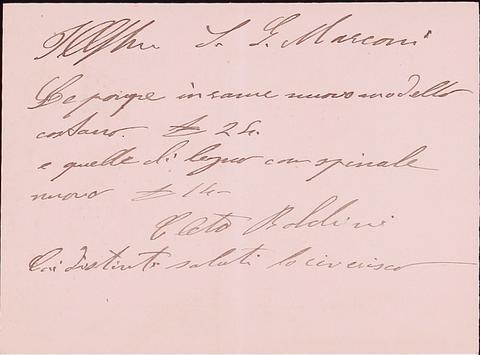 S. G. Marconi
Le pompe in rame nuovo modello
costano. £ 24.
e quelle di legno con spinale
nuovo £ 14-
Boldini
Coi distinti saluti lo riverisco